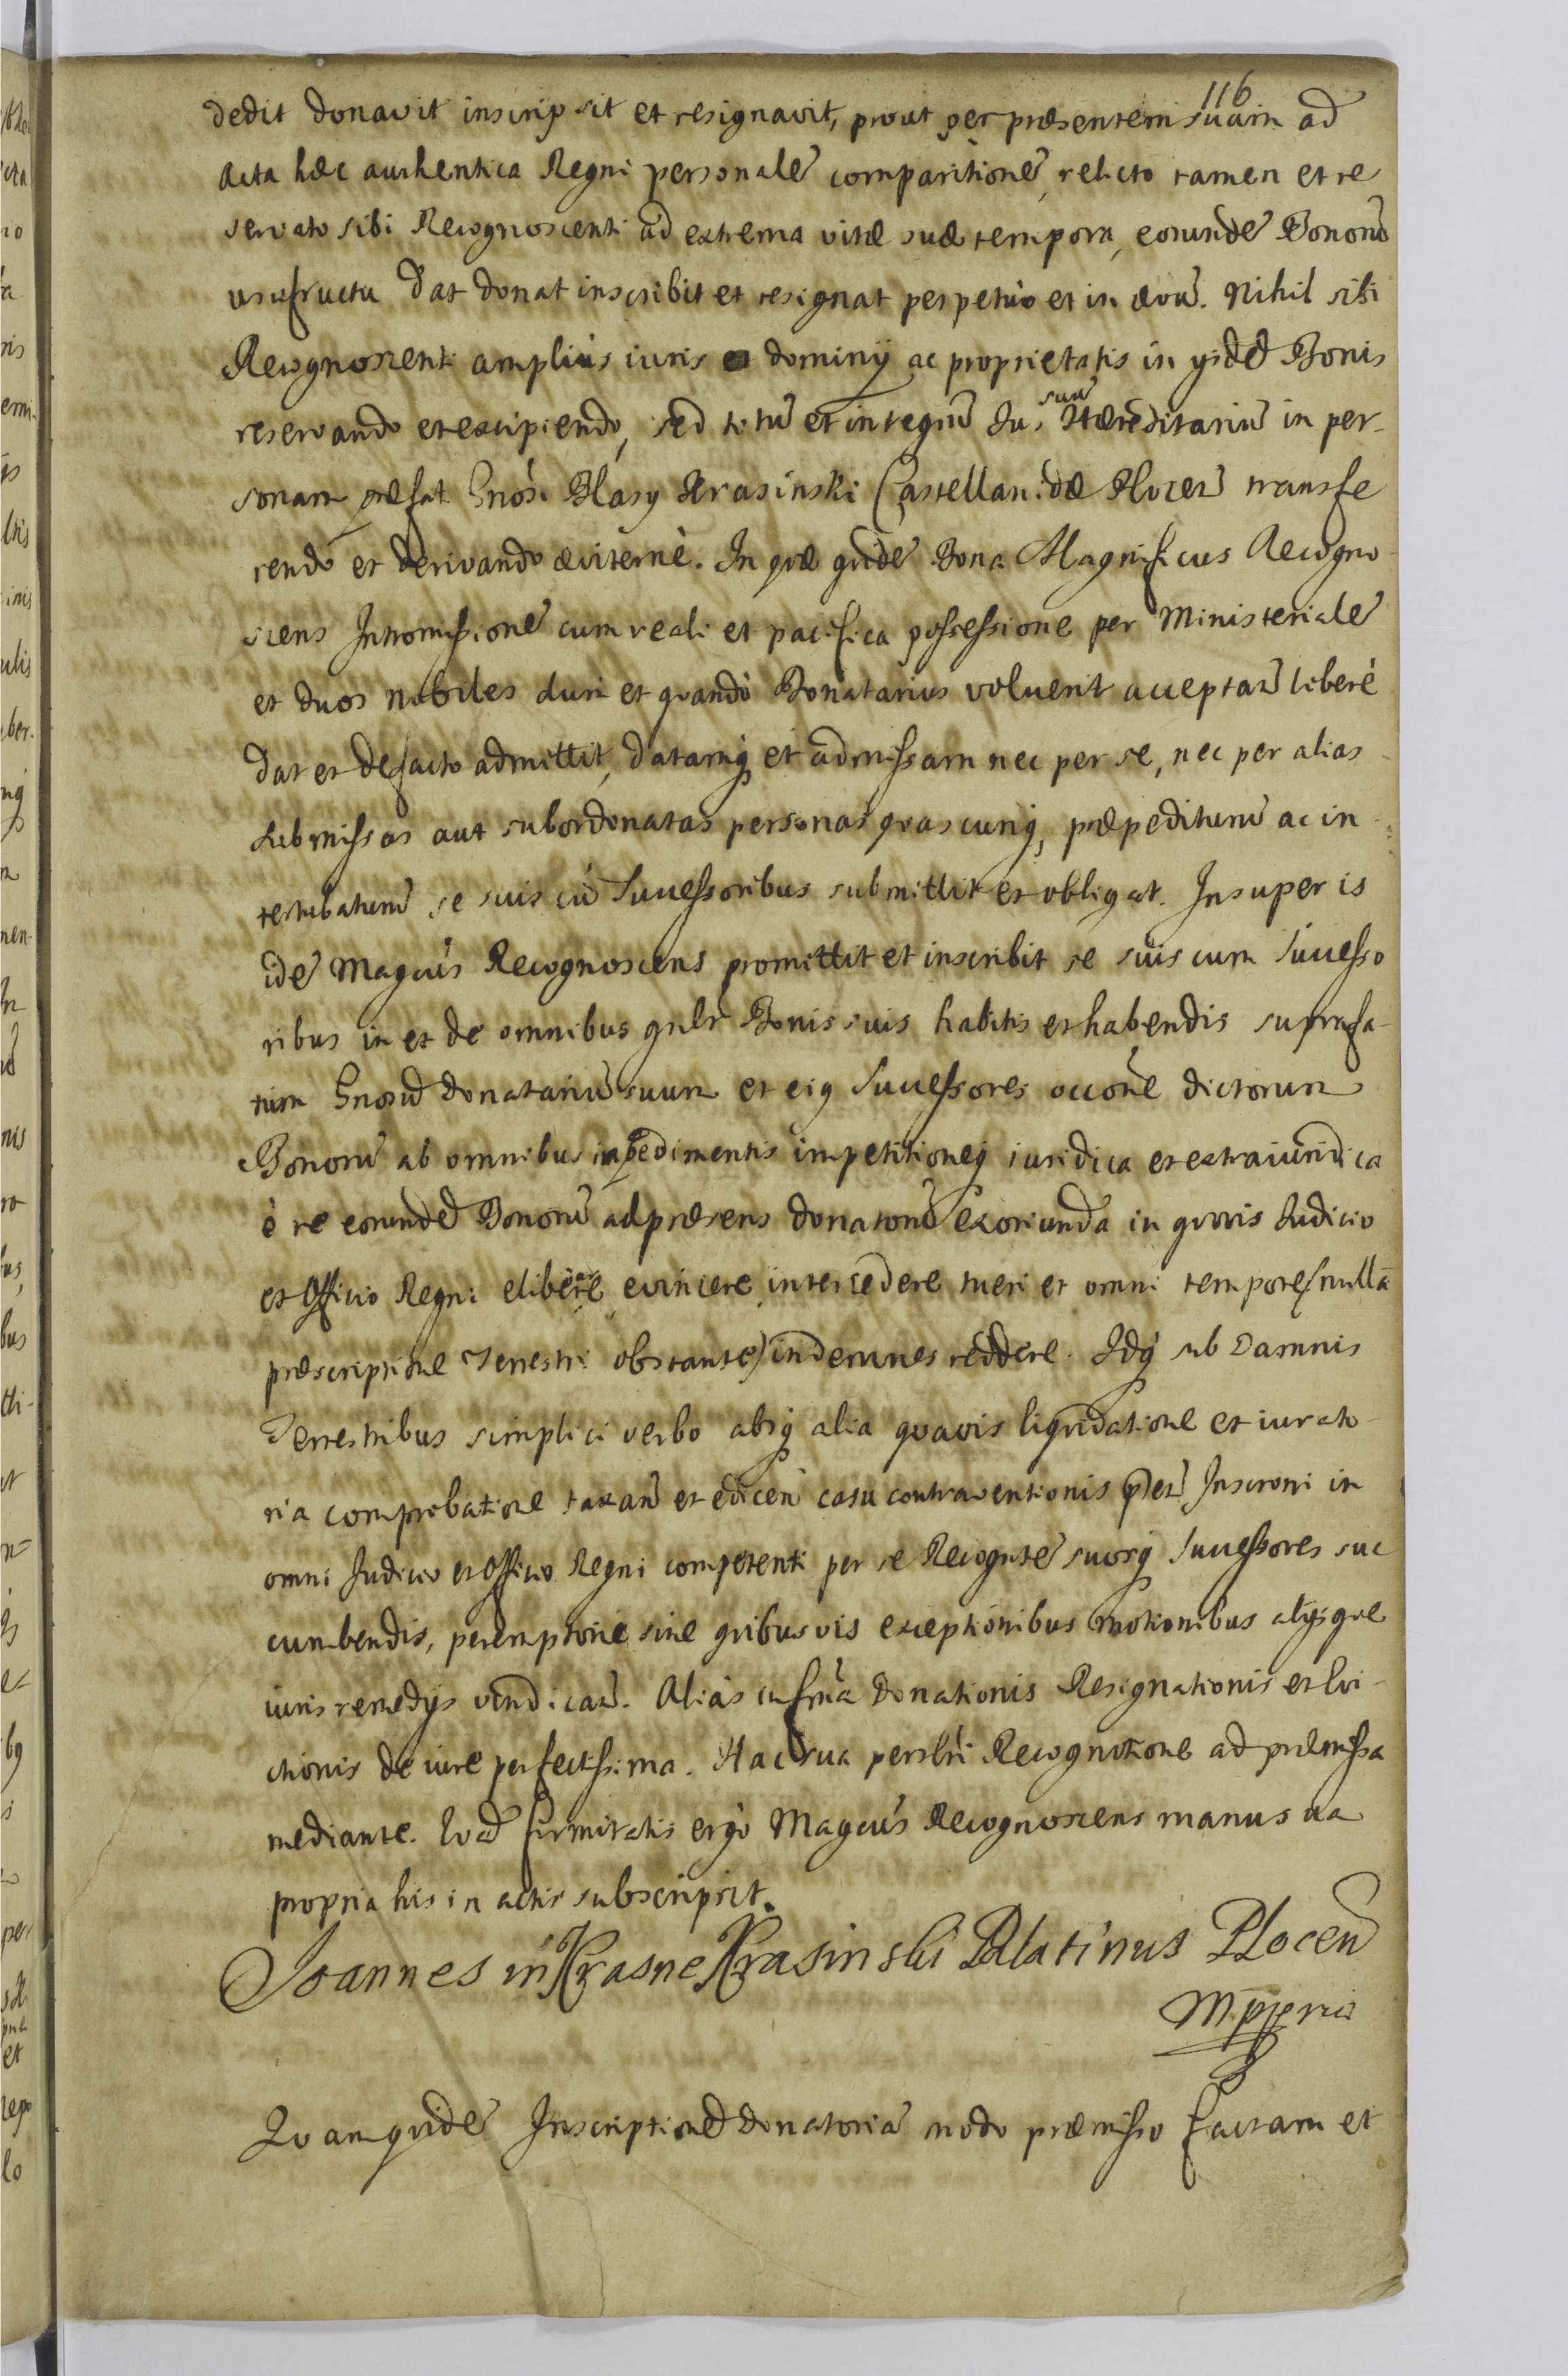 116
dedit donavit inscripsit et resignavit, prout per præsentem suam ad
acta hæc authentica Regni personalẽ comparitionẽ, relicto tamen et re
servato sibi Recognoscenti ad extrema vitæ suæ tempora, eorundẽ Bonorũ
usufructu dat donat inscribit et resignat perpetuò et in ævũ. Nihil sibi
Recognoscenti amplius iuris dominÿ ac proprietatis in ÿsdẽ Bonis
reservando et excipiendo, sed totũ et integrũ Jus suũ Hæreditariũ in per-
sonam præfat Gnosi Blasÿ Krasinski Castellanidæ Plocen̄ transfe
rendo et derivando æviternè. In quæ quidẽ Bona Magnificus Recogno
scens Intromissionẽ cum reali et pacifica possessione per Ministerialẽ
et duos nobiles dum et quandò Donatarius voluerit acceptan̄ liberè
dat et defacto admittit, datamq; et admissam nec per se, nec per alias
submissas aut subordonatas personas quascunq; præpediturũ ac in
terturbaturũ se suis cũ Successoribus submittit et obligat. Insuper is
idẽ Magcus Recognoscens promittit et inscribit se suis cum Successo
ribus in et de omnibus gnlr Bonis suis habitis et habendis suprafa-
tum Gnosũ Donatariũ suum et eiq Successores occõne dictorum
Bonorũ ab omnibus impedimentis impetitioneq; iuridica et extraiuridica
è re eorundẽ Bonorũ ad præsens donatorũ exoriunda in quovis Judicio
et Officio Regni eliberare, evincere, intercedere tueri et omni tempore (nullã
præscriptione Terrestri obstante) indemnes reddere. Idq; sub Damnis
Terrestribus simplici verbo absq; alia quavis liquidatione et iurato-
ria comprobatione taxan̄ et edicen̄ casu contraventionis pñti Inscroni in
omni Judicio et Officio Regni competenti per se Recogntẽ suosq; Successores suc
cumbendis, peremptoriè sine quibusvis exceptionibus motionibus alÿsque
iuris remedÿs vendican̄. Alias in frma Donationis Resignationis et Evi-
ctionis de iure perfectissima. Hac sua persnli Recognitione ad præmissa
mediante. Quod firmitatis ergò Magcus Recognoscens manu sua
propria his in actis subscripsit.
Joannes in Krasne Krasinski Palatinus Plocen̄
Mppria
Quam quidẽ Inscriptionẽ Donatoriã modo præmisso factam et